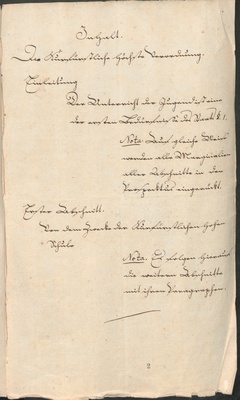 Inhalt.
Die Kurfürstliche höchste Verordnung.
Einleitung
Der Unterricht der Jugend ist eins
der ersten Bedürfnisse des Staats § 1.
Nota. Auf gleiche Weise
werden alle Marginalien
aller Abschnitte in den
Prospektus eingerückt.
Erster Abschnitt.
Von dem Zwecke der Kurfürstlichen hohen
Schule
Nota. Es folgen hierauf
die weitern Abschnitte
mit ihren Paragraphen.
2